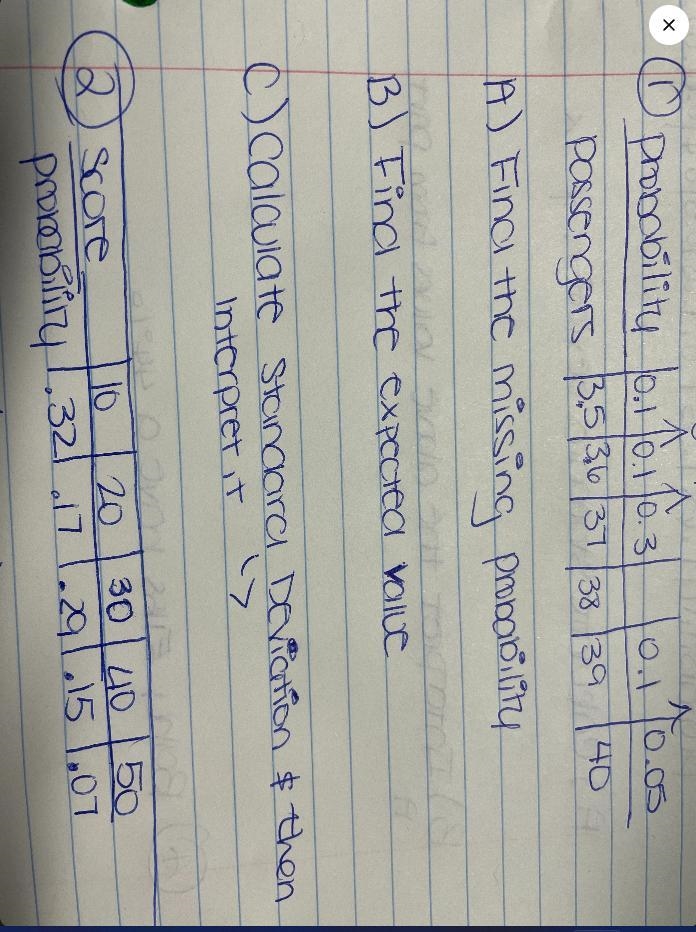 ① Probability 0.1 0.1 0.3 0.1 0.05
passengers 35 36 37 38 39 40
A) Find the missing probability
B) Find the expected value
C) Calculate Standard Deviation & then
Interpret it
② Score 10 20 30 40 50
probability .32 .17 .29 .15 .07